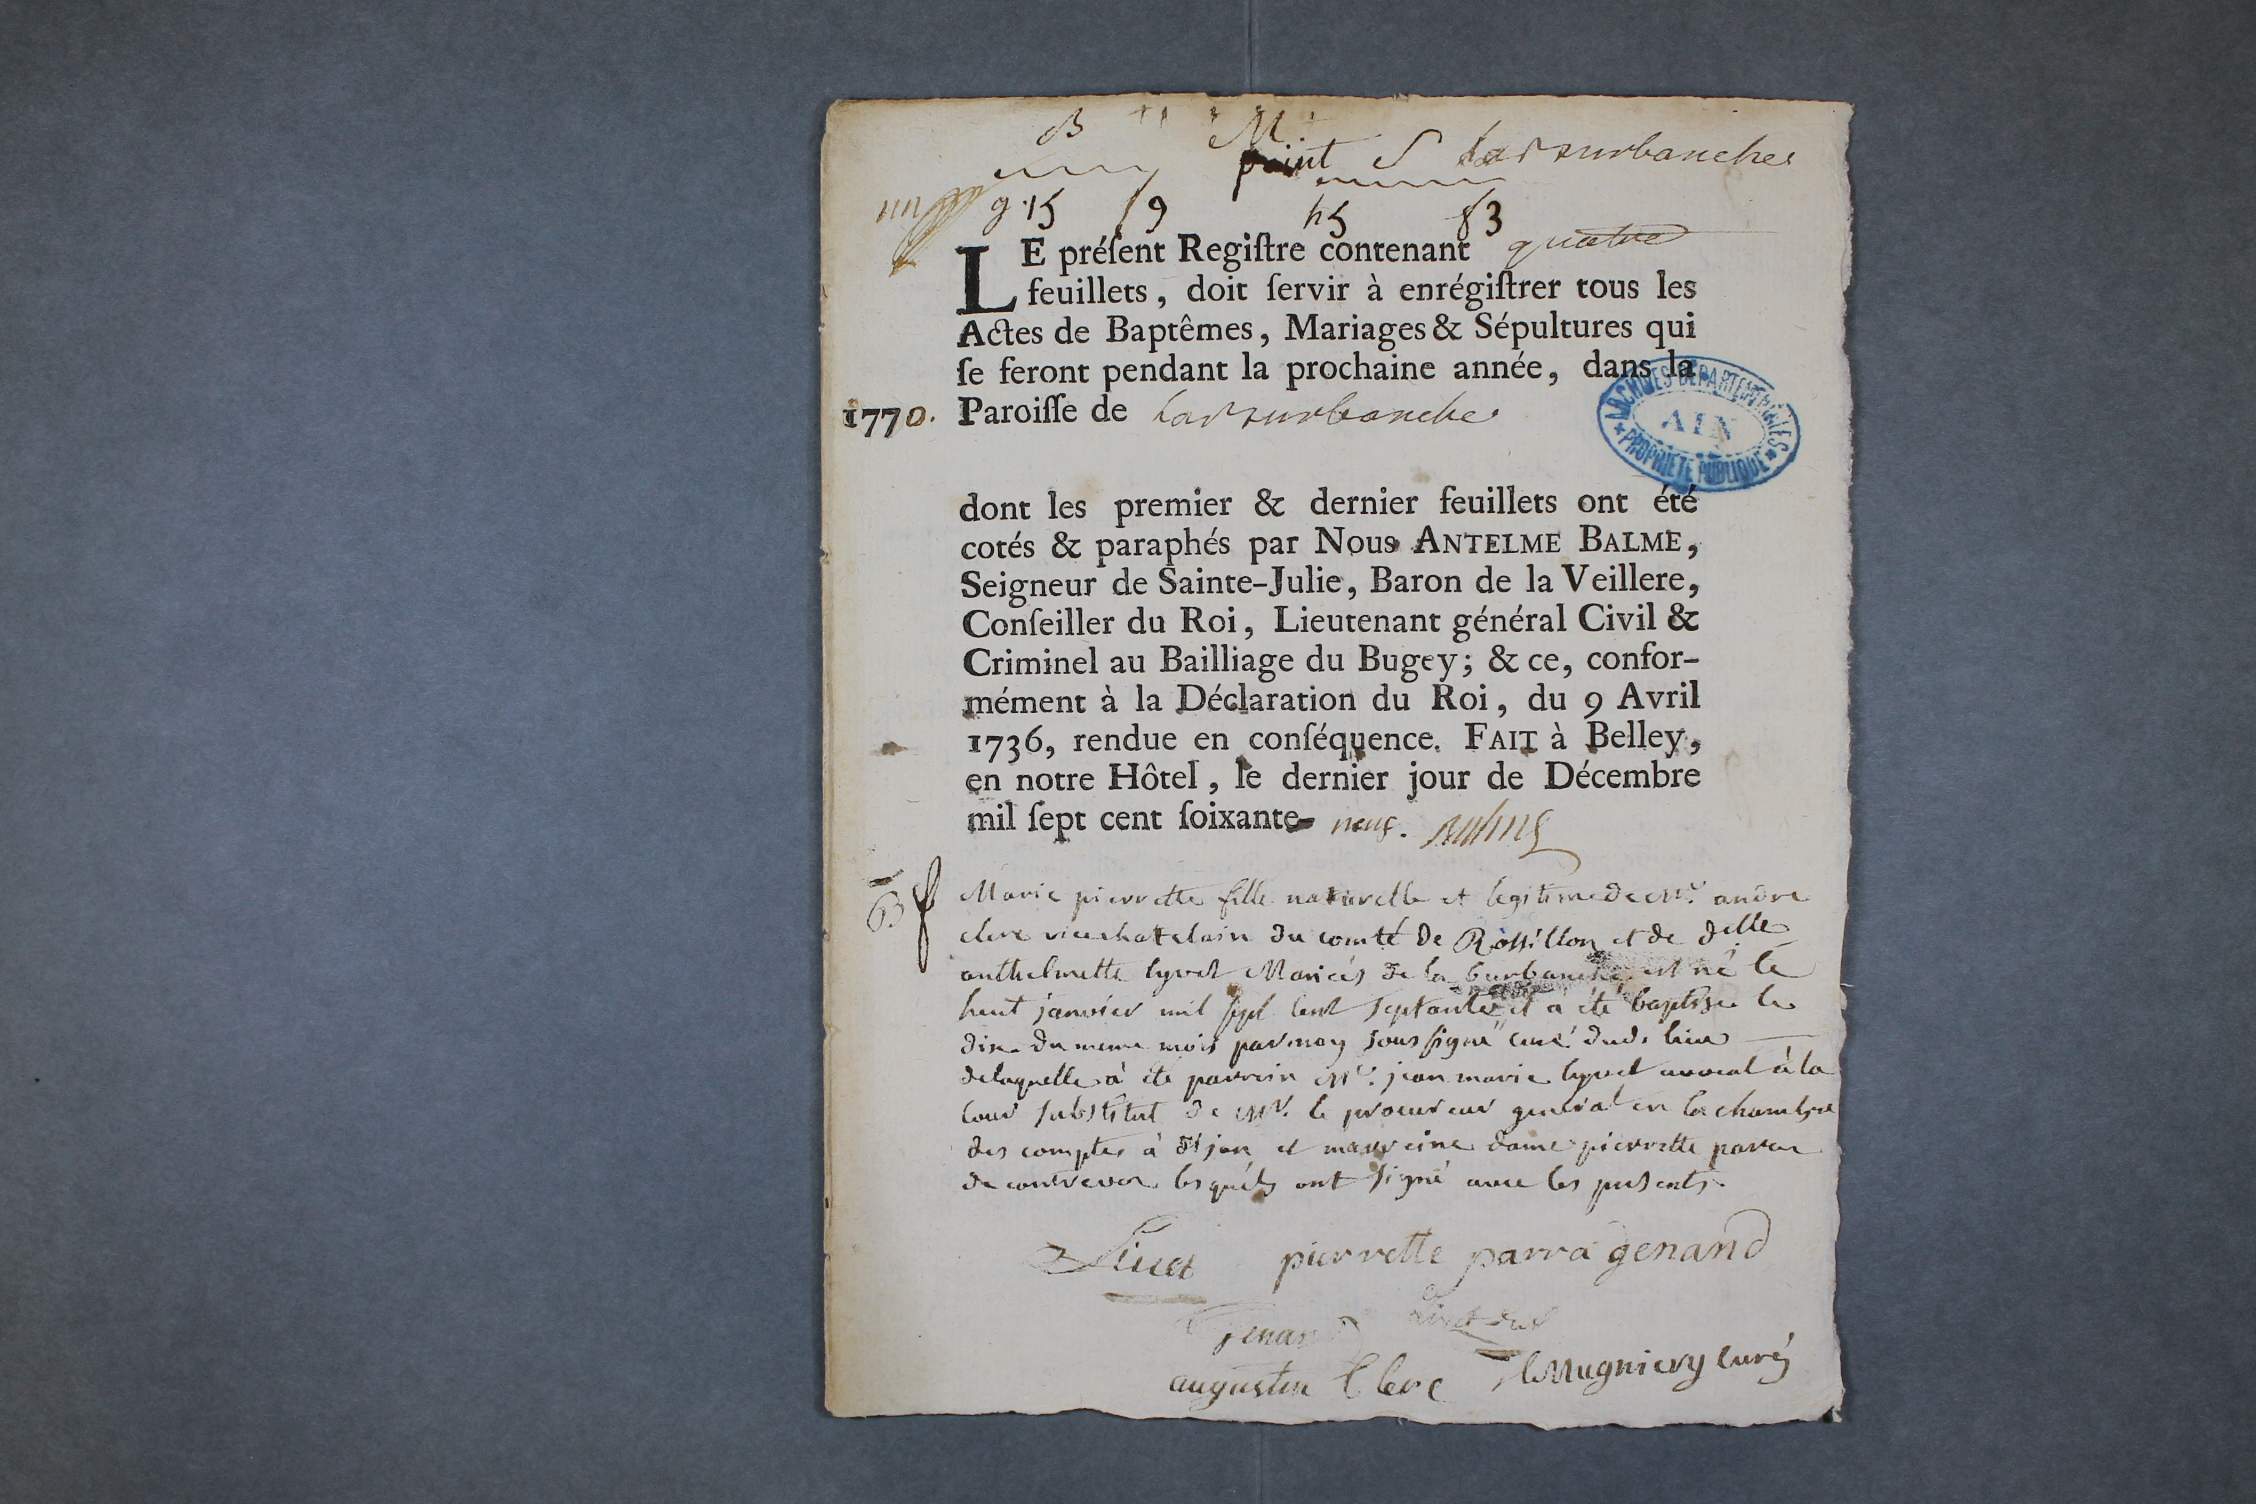 B M. point S la Burbanche
g. 15 f 9 h 5 f 3
LE préſent Regiſtre contenant quatre
feuillets, doit ſervir à enrégiſtrer tous les
Actes de Baptêmes, Mariages & Sépultures qui
ſe feront pendant la prochaine année, dans la
1770. Paroiſſe de la Burbanche
ARCHIVES DÉPARTEMENTALES
AIN
* PROPRIÉTÉ PUBLIQUE *
dont les premier & dernier feuillets ont été
cotés & paraphés par Nous ANTELME BALME,
Seigneur de Sainte-Julie, Baron de la Veillere,
Conſeiller du Roi, Lieutenant général Civil &
Criminel au Bailliage du Bugey; & ce, confor-
mément à la Déclaration du Roi, du 9 Avril
1736, rendue en conſéquence. FAIT à Belley,
en notre Hôtel, le dernier jour de Décembre
mil ſept cent ſoixante- neuf. Balme
B f Marie pierrette fille naturelle et legitime de Mr. andre
clerc vice chattelain du comté De Rossillon et de delle
anthelmette lyvet Mariés de la burbanche est né le
huit janvier mil sept cent septante et a été baptisée le
dix du meme mois par moy sous signé curé dud. lieu
de laquelle à été parrein Mr. jean marie lyvet avocat à la
cour substitut de Mr. le procureur general en la chambre
des comptes à dijon et marreine dame pierrette parra
de contrevoz lesquels ont signé avec les presents.
Livet pierrette parra genand
Genand Livet
augustin Clerc Mugniery curé